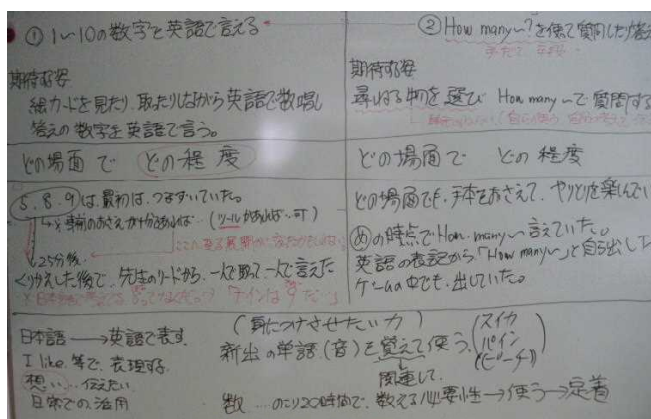 ① 1〜10の数字を英語で言える
期待する姿
絵カードを見たり、取ったりしながら英語で数唱し
答えの数字を英語で言う。
どの場面で どの程度
5、8、9は、最初は、つまずいていた。
(ツールがあれば…可)
25分後、
くりかえした後で、先生のリードから、一人で取って一人で言えた
② How many〜?を使って質問したり答え
期待する姿
尋ねる物を選び How many〜で質問する
どの場面で どの程度
どの場面でも、手本をおさえて、やりとりを楽しんでい
めの時点でHow many〜言えていた。
英語の表記から「How many〜」と自ら出して
ゲームの中でも、出していた。
日本語→英語で表す
I like 等で、表現する
想い…伝えたい
日常での活用
(身につけさせたい力)
新出の単語(音)を覚えて使う。(スイカ パイン (ピーチ))
関連して、
数…のこり20時間で、数える必要性→使う→定着